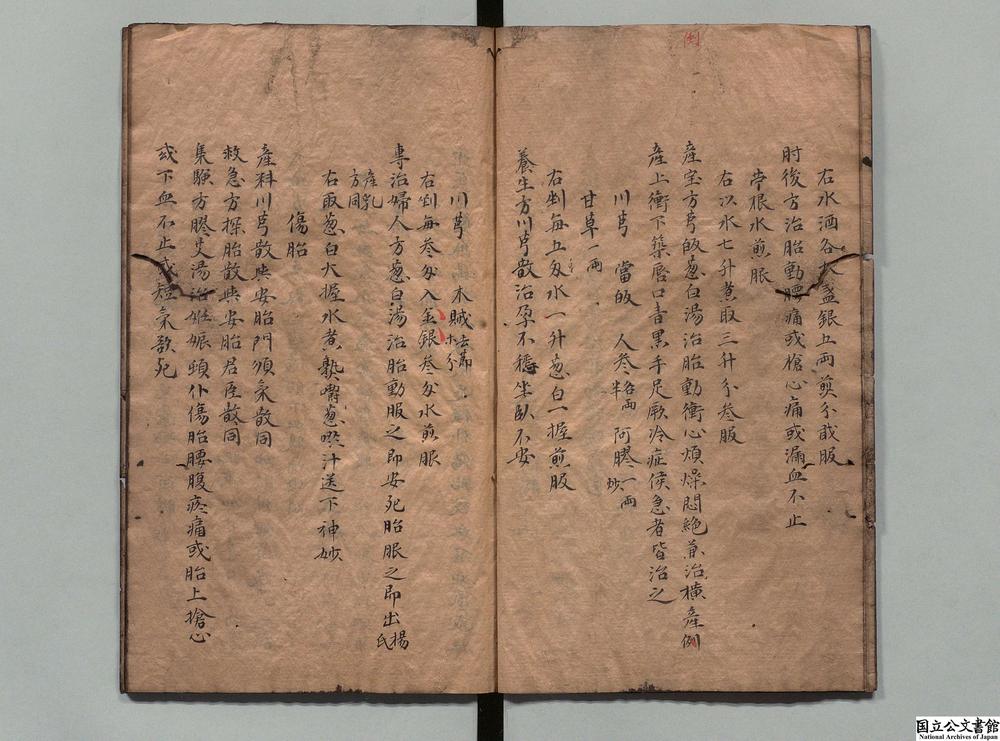 右水酒各大盞銀五両煎分弐服
肘後方治胎動腰痛或槍心痛或漏血不止
苧根水煎服
右以水七升煮取三升分叁服
産宝方芎皈葱白湯治胎動衝心煩燥悶絶兼治横産例
倒
産上衝下築唇口青黒手足厥冷症候急者皆治之
川芎 當皈 人参各両半 阿膠一両炒
甘草一両
右剉每五匁水一升葱白一握煎服
養生方川芎散治孕不穏坐臥不安
川芎 木賊去節 朩分
右剉每叁匁入金銀叁匁水煎服
專治婦人方葱白湯治胎動服之即安死胎服之即出楊氏
産乳方同
右取葱白大握水煮熟嚼葱喫汁送下神妙
傷胎
産科川芎散與安胎門順氣散同
救急方探胎散與安胎君臣散同
集驗方膠艾湯治姙娠頓仆傷胎腰腹疼痛或胎上搶心
或下血不止或短氣欲死
国立公文書館
National Archives of Japan